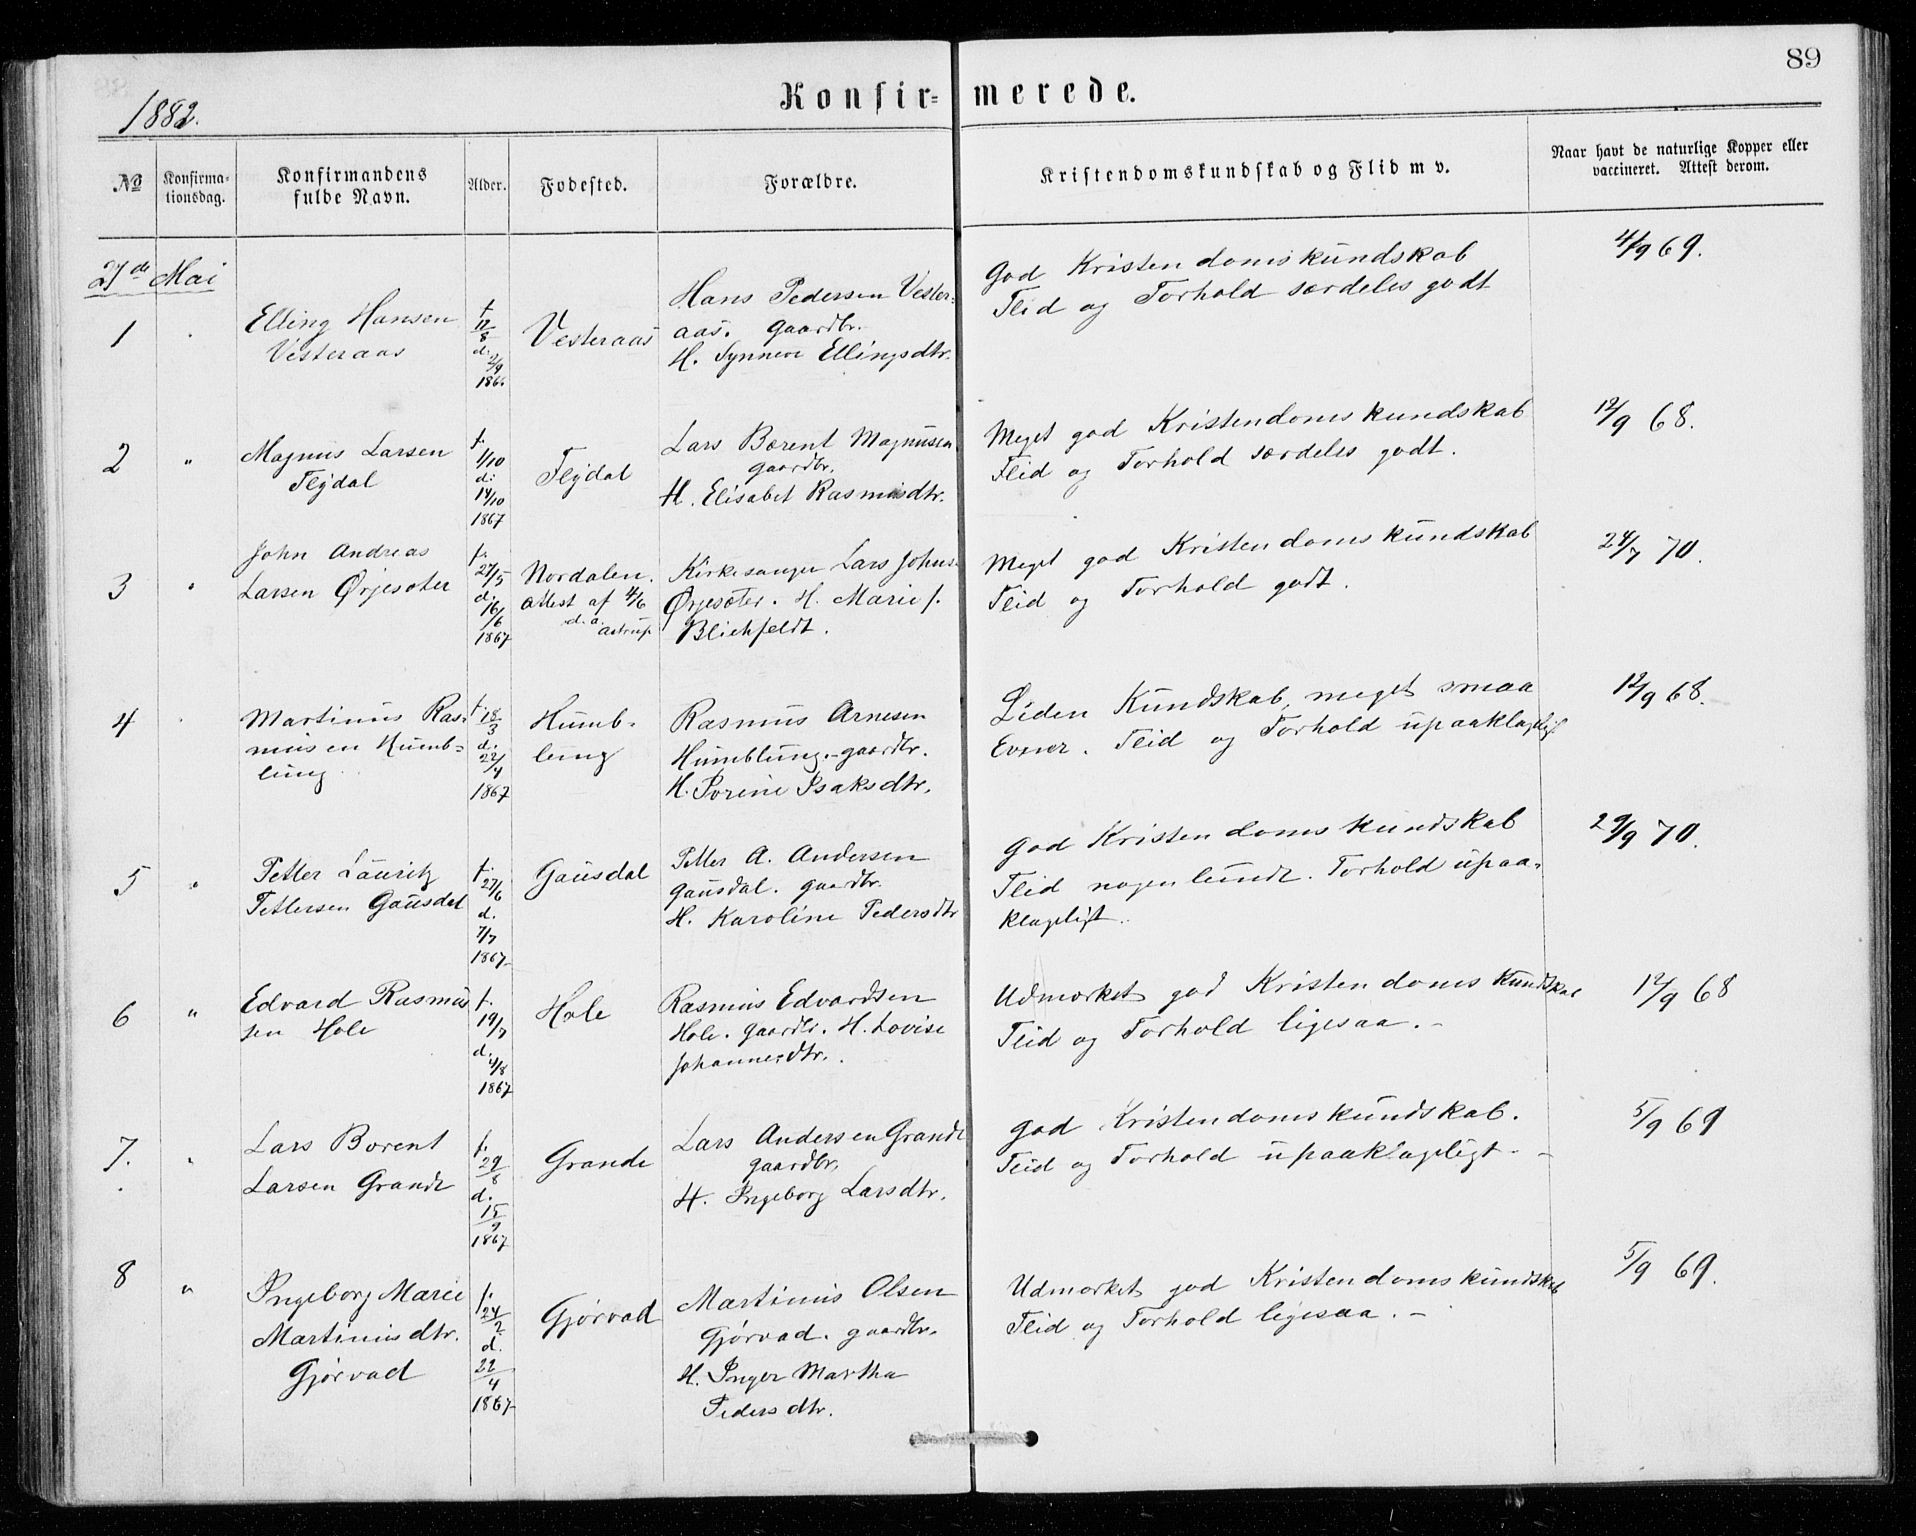 89
Konfir=merede.
1882.
No
Konfirma-
tionsdag.
Konfirmandens
fulde Navn.
Alder.
Fødested.
Forældre.
Kristendomskundskab og Flid m v.
Naar havt de naturlige Kopper eller
vaccineret. Attest derom.
Mai
1
Elling Hansen
Vesteraas
f.
11/8
d.
2/9
Vesteraas
Hans Pedersen Vester-
aas. Gaardbr.
H. Synneve Ellingsdtr.
God Kristendomskundskab
Flid og Forhold særdeles godt
4/9 69.
2 "
Magnus Larsen
Flydal
f.
1/10
d:
14/10
1867
Flydal
Lars Berent Magnusen
Gaardbr.
H. Elisabet Rasmusdtr.
Meget god Kristendomskundskab
Flid og Forhold særdeles godt.
12/9 68.
3 "
John Andreas
Larsen Ørjesæter
f.
27/5
d.
16/6
1867
Nordalen.
Attest af 4/6
d.a.
Astrup
Kirkesanger Lars Johns.
Ørjesæter. H. Marie f.
Blichfeldt.
Meget god Kristendomskundskab
Flid og Forhold godt.
24/7 70.
4
Martinus Ras-
musen Humb-
lung
f.
18/3
d.
22/4
1867
Humb-
lung
Rasmus Arnesen
Humblung. gaardbr.
H. Sorine Isaksdtr.
Liden Kundskab, meget smaa
Evner. Flid og Forhold upaaklageligt
12/9 68.
5 "
Petter Lauritz
Pettersen Gausdal
f.
27/6
d.
7/7
1867
Gausdal
Petter A. Andersen
Gausdal. gaardbr.
H. Karoline Pedersdtr
God Kristendomskundskab
Flid nogenlunde. Forhold upaa-
klageligt.
29/9 70.
6 "
Edvard Rasmus
sen Hole
f.
19/7
d.
4/8
1867
Hole
Rasmus Edvardsen
Hole. Gaardbr. H. Lovise
Johannesdtr.
Udmærket god Kristendomskundskab
Flid og Forhold ligesaa. -
12/9 68
7. "
Lars Berent
Larsen Grande
f.
29/8
d.
15/9
1867
Grande
Lars Andersen Grande
gaardbr.
H. Ingeborg Larsdtr.
God Kristendomskundskab.
Flid og Forhold upaaklageligt - -
5/9 69
8 "
Ingeborg Marie
Martinusdtr.
Gjørvad
f.
24/2
d.
22/4
1867
Gjørvad
Martinus Olsen
Gjørvad. gaardbr.
H. Inger Martha
Pedersdtr.
Udmærket god Kristendomskundskab
Flid og Forhold ligesaa. -
5/9 69.